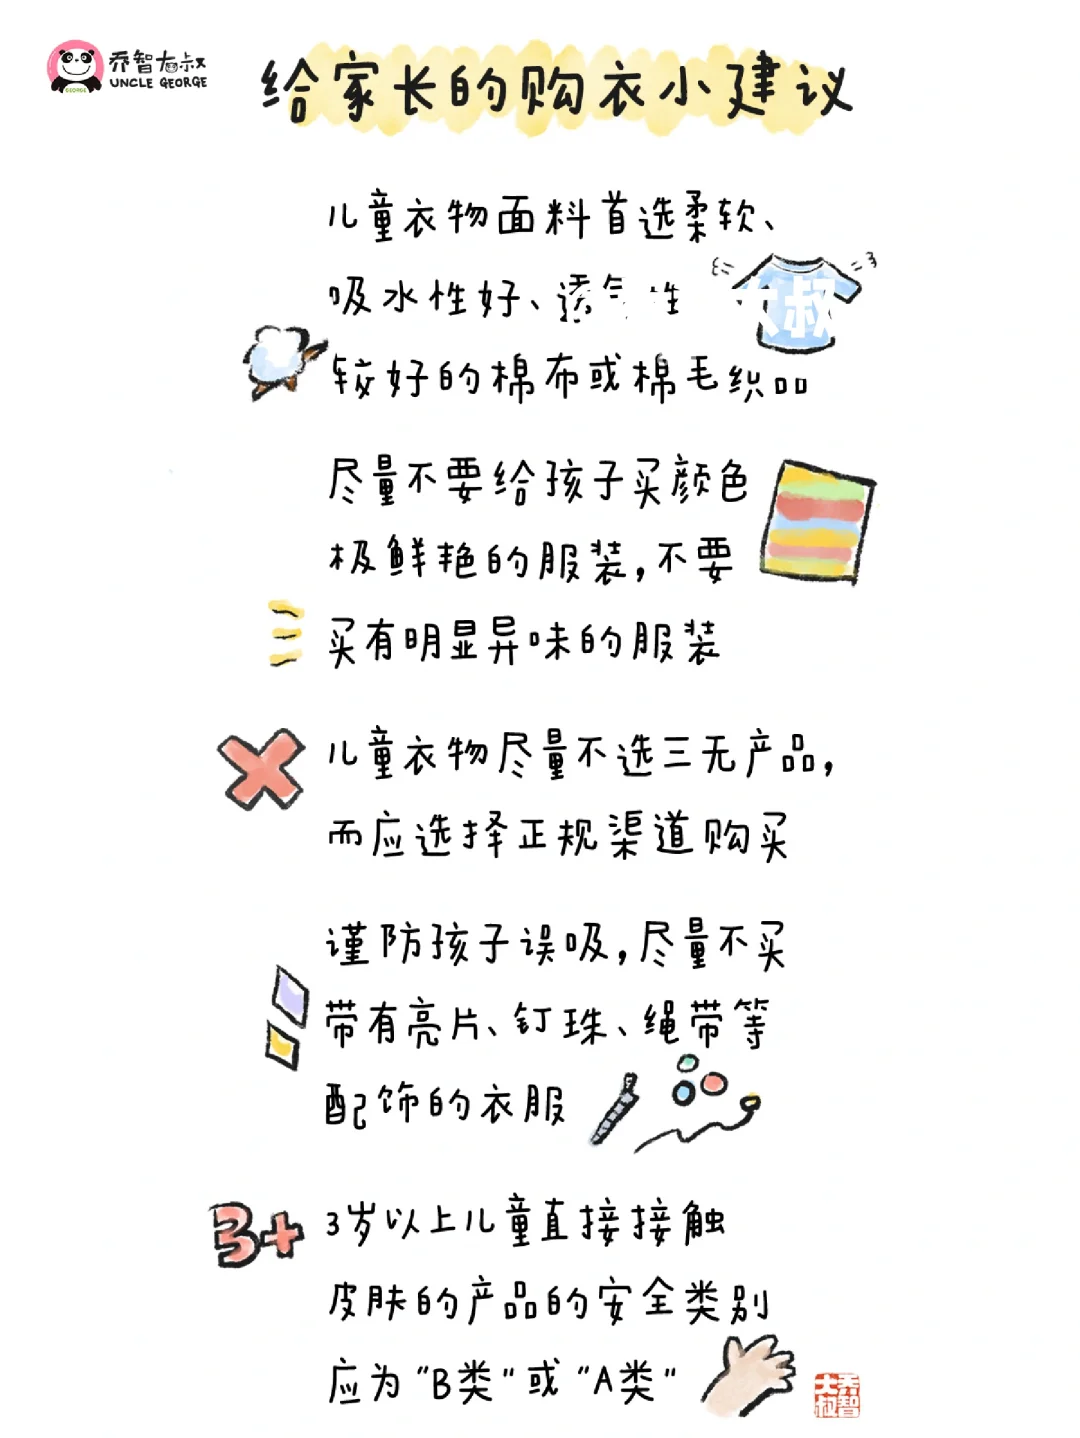 乔智大叔
UNCLE GEORGE
GEORGE
给家长的购衣小建议
儿童衣物面料首选柔软、
吸水性好、透气性
大叔
较好的棉布或棉毛织品
尽量不要给孩子买颜色
极鲜艳的服装,不要
买有明显异味的服装
儿童衣物尽量不选三无产品,
而应选择正规渠道购买
谨防孩子误吸,尽量不买
带有亮片、钉珠、绳带等
配饰的衣服
3+
3岁以上儿童直接接触
皮肤的产品的安全类别
应为“B类”或“A类”
乔智大叔